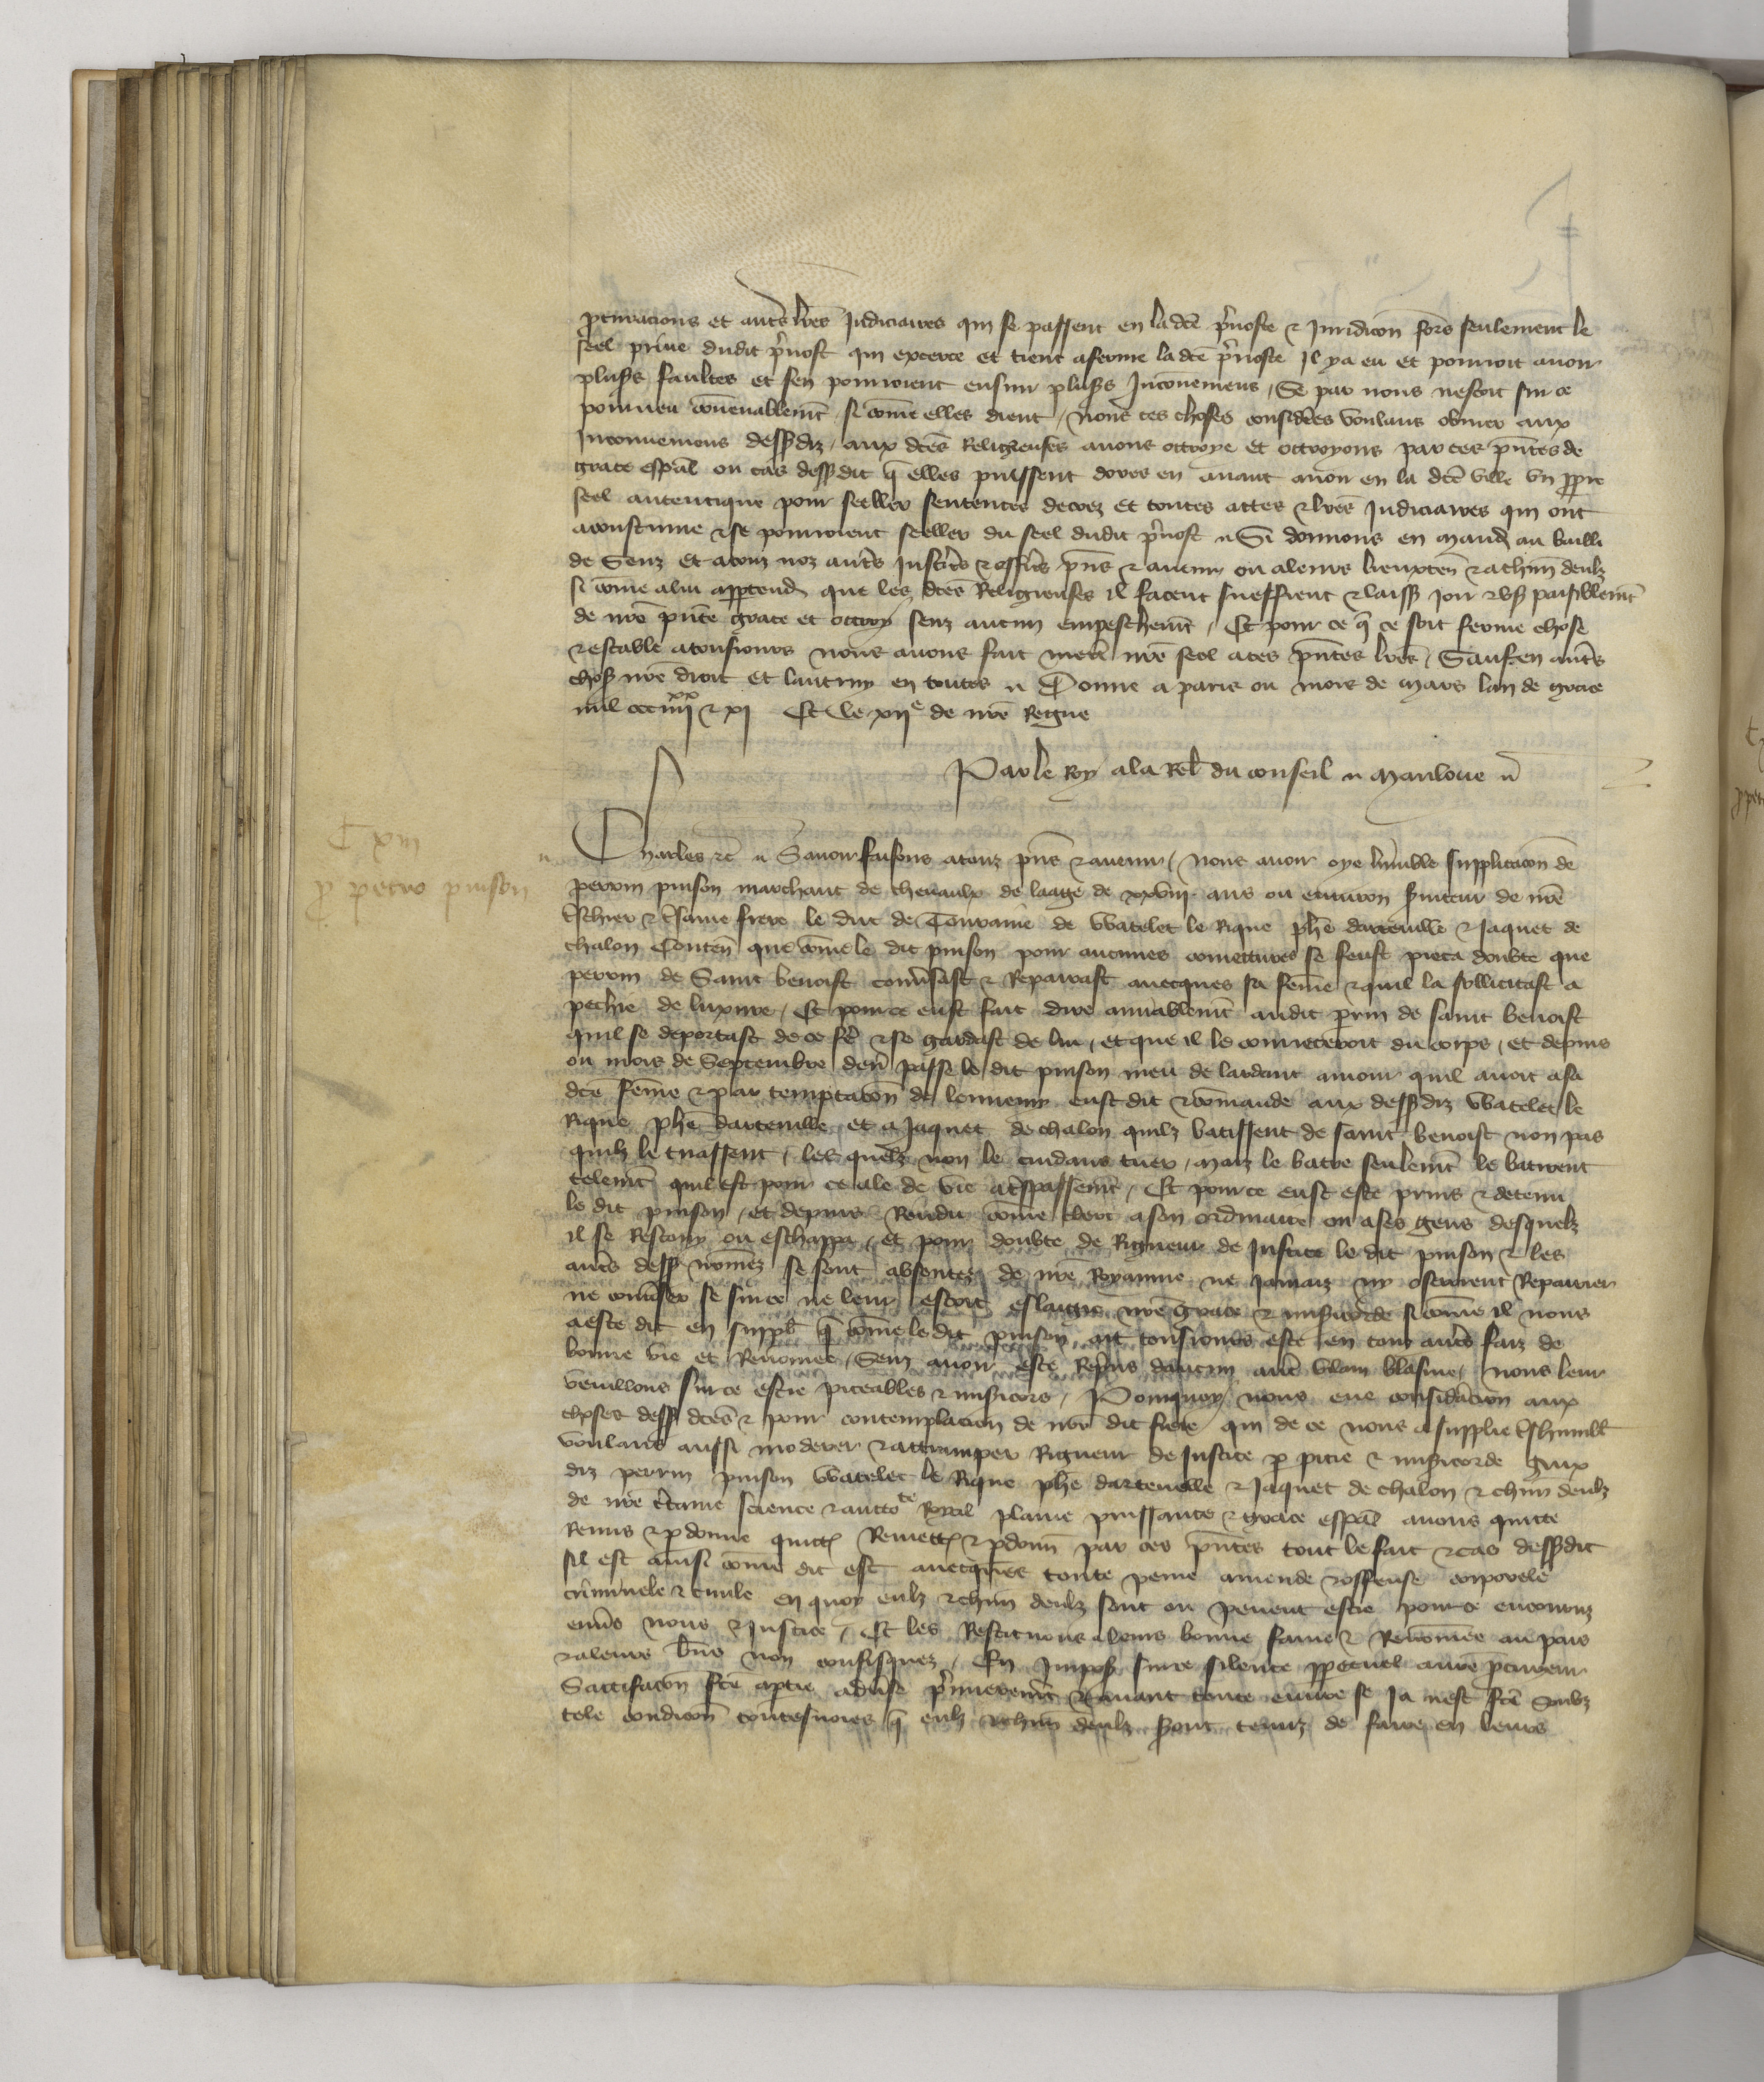 prcuracions et autres lres Judiciaires qui se passent en ladce prevoste & Juridicon fors seulement le
seel prive dudit prevost qui excerce et tient aferme la dce prevoste Il ya eu et pourroit avoir
pluss faultes et sen pourroient ensuir pluss Inconveniens, Se par nous nestoit sur ce
pourveu convenablemt si come elles dient, Nous ces choses considerees voulans obvier aux
Inconveniens dessusdiz, aux dces Religieuses avons ottroye et ottroyons par ces pntes de
grace espal ou cas dessusdit q elles puissent dores en avant avoir en la dce ville un propre
seel autentique pour seeller sentences decrez et toutes attes & lres Judiciaires qui ont
acoustume & se pourroient seeller du seel dudit prevost Si donnons en mand au bailli
de Senz Et atouz noz autres Justiciers & officiers pns & avenir ou aleurs lieuxten & achun deulz
si come alui appartend que les dces Religieuses il facent sueffrent & laiss joir & user paisiblemt
de nre pnte grace et ottroy senz aucun empeschemt, Et pour ce q ce soit ferme chose
& estable atousiours nous avons fait mettre nre seel aces pntes lres, Sauf en autres
choses nre droit et lautruy en toutes Donne a paris ou mois de Mars lan de grace
mil ccc iiii xx & xi Et le xiie de nre Regne
Par le Roy ala Rel du conseil Manloue
C xiii
p petro pinson
Charles &c Savoir faisons atouz pns & avenir, Nous avoir oye lumble supplicacion de
perrin pinson marchant de chevaulx de laage de xxviii ans ou environ serviteur de nre
treschier & tresame frere le duc de Touraine de Watelet le Rique phe dartenille & Jaquet de
chalon Conten que come le dit pinson pour aucunes coniettures se feust pieca doubte que
perrin de Saint benoist conversast & Repairast avecques sa feme & quil la sollicitast a
pechie de luxure, Et pour ce eust fait dire amiablemt audit perrin de saint benoist
quil se deportast de ce fe & se gardast de lui, et que il le courrouceroit du corps, et depuis
ou mois de Septembre den passe le dit pinson meu de lardant amour quil avoit asa
dce feme & par temptacon de lennemy eust dit & comande aux dessusdiz Watelet le
Rique phe dartenille et a Jaquet de chalon quilz batissent de saint benoist non pas
quilz le tuassent, les quelz non le cuidans tuer, maiz le batre seulemt le batirent
telemt quil est pour ce ale de vie atrespassemt, Et pour ce eust este prins & detenu
le dit pinson, et depuis Rendu come clerc a son ordinaire ou ases gens desquelz
il se Rescouy ou eschappa, et pour doubte de Rigueur de Justice le dit pinson & les
autres dess nomez se sont absentez de nre Royaume ne jamaiz ny oseroient Repairier
ne converser se sur ce ne leur estoit eslargie nre grace & misericorde si come il nous
a este dit en suppl q come le dit pinson ait tousiours este en touz autres faiz de
bonne vie et Renomee, Senz avoir este Reprins daucun autre vilain blasme, Nous leur
veuillons sur ce estre piteables & misericors, Pourquoy nous eue consideracion aux
choses dess dces & pour contemplacion de nre dit frere qui de ce nous a supplie treshumbl
voulans aussi moderer & attramper Rigueur de Justice p pitie & misericorde aux
diz perrin pinson Watelet le Rique phe dartenille & Jaquet de chalon & chun deulz
de nre certaine science & auctote Royal plaine puissance & grace espal avons quicte
Remis & pdonne quictt Remettt & pdonn par ces pntes tout le fait & cas dessusdit
sil est ainsi come dit est avecques toute peine amende & offense corporele
criminele & civile en quoy eulz & chun deulz sont ou pevent estre pour ce encouruz
envers nous & Justice, Et les Restituons aleurs bonne fame & Renomee au pais
& aleurs biens non confisquez, En Imposs sur ce silence ppetuel anre pcureur
Satisfacon fce aptie adverse premieremt & avant toute euvre se Ja nest fce Soubz
tele condicon toutesvoies q eulz & chun deulz seront tenuz de faire en leurs